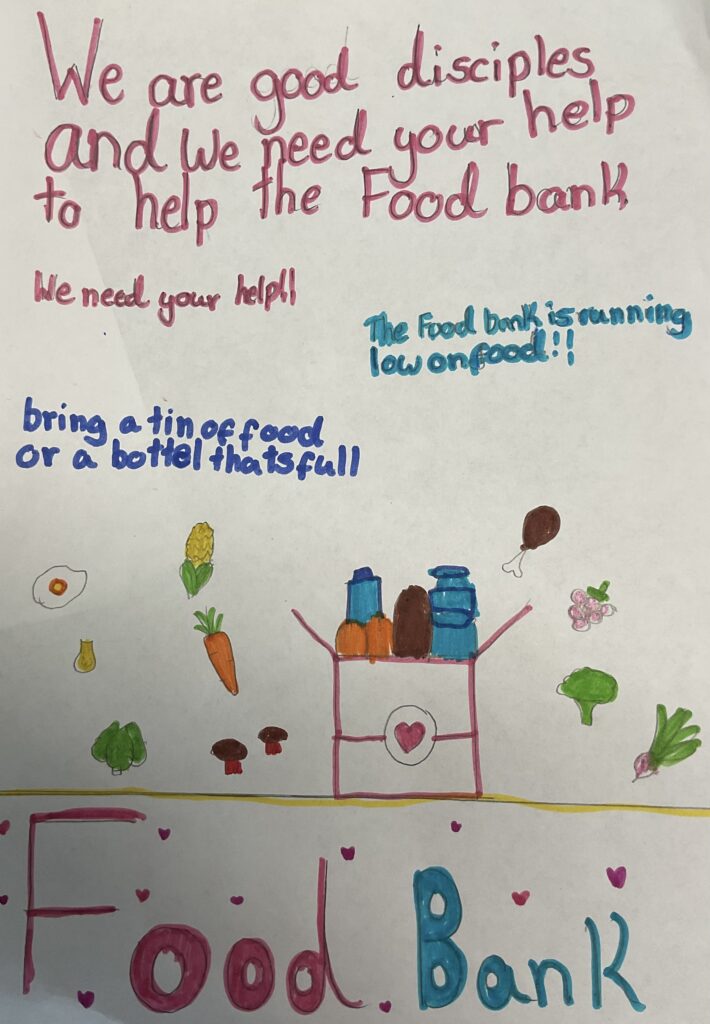 We are good disciples
and we need your help
to help the Food bank
We need your help!!
The Food bank is running
low on food!!
bring a tin of food
or a bottel thats full
Food Bank